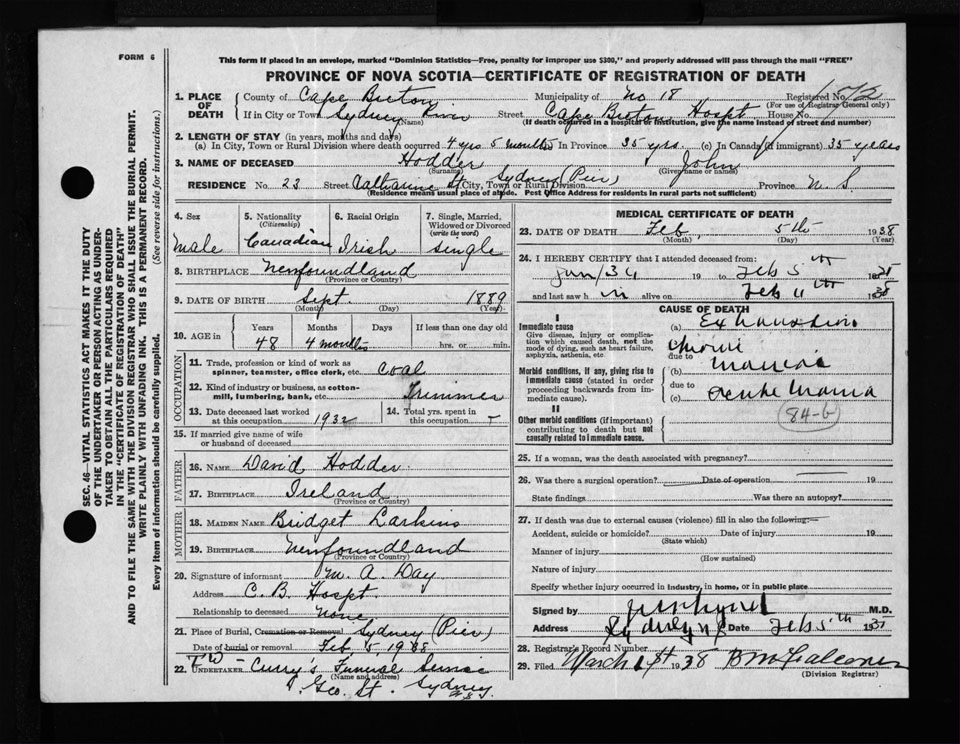 FORM 6
This form if placed in an envelope, marked "Dominion Statistics—Free, penalty for improper use $300," and properly addressed will pass through the mail "FREE"
PROVINCE OF NOVA SCOTIA—CERTIFICATE OF REGISTRATION OF DEATH
1. PLACE OF DEATH County of Cape Breton Municipality of No 18 Registered No. 72
(For use of Registrar General only)
If in City or Town Sydney River Street Cape Breton Hospt House No.
(Name) (If death occurred in a hospital or institution, give the name instead of street and number)
2. LENGTH OF STAY (in years, months and days)
(a) In City, Town or Rural Division where death occurred 4 yrs 5 months In Province 35 yrs. (c) In Canada (if immigrant) 35 years
3. NAME OF DECEASED Hodder John
(Surname) (Given name or names)
RESIDENCE No. 23 Street Catharine St. City, Town or Rural Division Sydney (Pier) Province N. S.
(Residence means usual place of abode. Post Office Address for residents in rural parts not sufficient)
4. Sex male
5. Nationality (Citizenship) Canadian
6. Racial Origin Irish
7. Single, Married, Widowed or Divorced (write the word) single
8. BIRTHPLACE Newfoundland
(Province or Country)
9. DATE OF BIRTH Sept. 1889
(Month) (Day) (Year)
10. AGE in Years Months Days If less than one day old
48 4 months hrs. or min.
OCCUPATION
11. Trade, profession or kind of work as spinner, teamster, office clerk, etc. Coal
12. Kind of industry or business, as cotton-mill, lumbering, bank, etc. Trimmer
13. Date deceased last worked at this occupation 1932
14. Total yrs. spent in this occupation
15. If married give name of wife or husband of deceased
FATHER
16. NAME David Hodder
17. BIRTHPLACE Ireland
(Province or Country)
MOTHER
18. MAIDEN NAME Bridget Larkins
19. BIRTHPLACE Newfoundland
(Province or Country)
20. Signature of informant M. A. Day
Address C. B. Hospt.
Relationship to deceased None
21. Place of Burial, Cremation or Removal Sydney (Pier)
Date of burial or removal Feb 5 1938
22. UNDERTAKER Curry's Funeral Service
(Name and address)
Geo. St. Sydney
N.S.
MEDICAL CERTIFICATE OF DEATH
23. DATE OF DEATH Feb. 5th 1938
(Month) (Day) (Year)
24. I HEREBY CERTIFY that I attended deceased from:
19 to Feb 5th 1938
and last saw him alive on Feb 4th 1938
CAUSE OF DEATH
I
Immediate cause
Give disease, injury or complication which caused death, not the mode of dying, such as heart failure, asphyxia, asthenia, etc.
(a) Exhaustion
due to
Chronic
(b) mania
Morbid conditions, if any, giving rise to immediate cause (stated in order proceeding backwards from immediate cause).
due to
(c) Acute Mania
84-b
II
Other morbid conditions (if important) contributing to death but not causally related to immediate cause.
25. If a woman, was the death associated with pregnancy?
26. Was there a surgical operation? Date of operation 19
State findings Was there an autopsy?
27. If death was due to external causes (violence) fill in also the following:—
Accident, suicide or homicide? Date of injury 19
(State which)
Manner of injury
(How sustained)
Nature of injury
Specify whether injury occurred in industry, in home, or in public place
Signed by M.D.
Address Sydney NS Date Feb 5th 1938
28. Registrar's Record Number
29. Filed March 1st 1938 B M Falconer
(Division Registrar)
SEC. 46—VITAL STATISTICS ACT MAKES IT THE DUTY
OF THE UNDERTAKER OR PERSON ACTING AS UNDER-
TAKER TO OBTAIN ALL THE PARTICULARS REQUIRED
IN THE "CERTIFICATE OF REGISTRATION OF DEATH"
AND TO FILE THE SAME WITH THE DIVISION REGISTRAR WHO SHALL ISSUE THE BURIAL PERMIT.
WRITE PLAINLY WITH UNFADING INK. THIS IS A PERMANENT RECORD.
Every item of information should be carefully supplied. (See reverse side for instructions.)